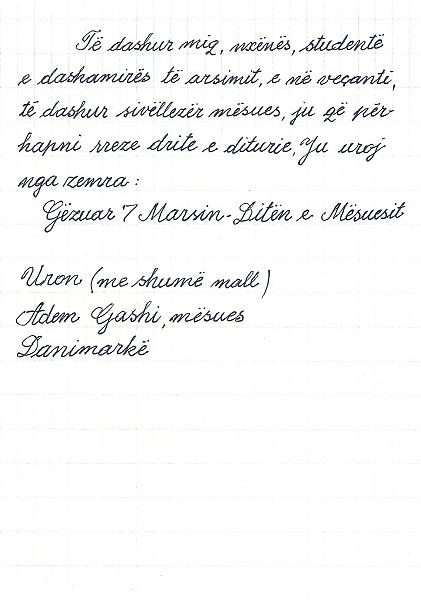 Të dashur miq, nxënës, studentë
e dashamirës të arsimit, e në veçanti,
të dashur sivëllezër mësues, ju që për-
hapni rreze drite e diturie, Ju uroj
nga zemra:
Gëzuar 7 Marsin-Ditën e Mësuesit
Uron (me shumë mall)
Adem Gashi, mësues
Danimarkë